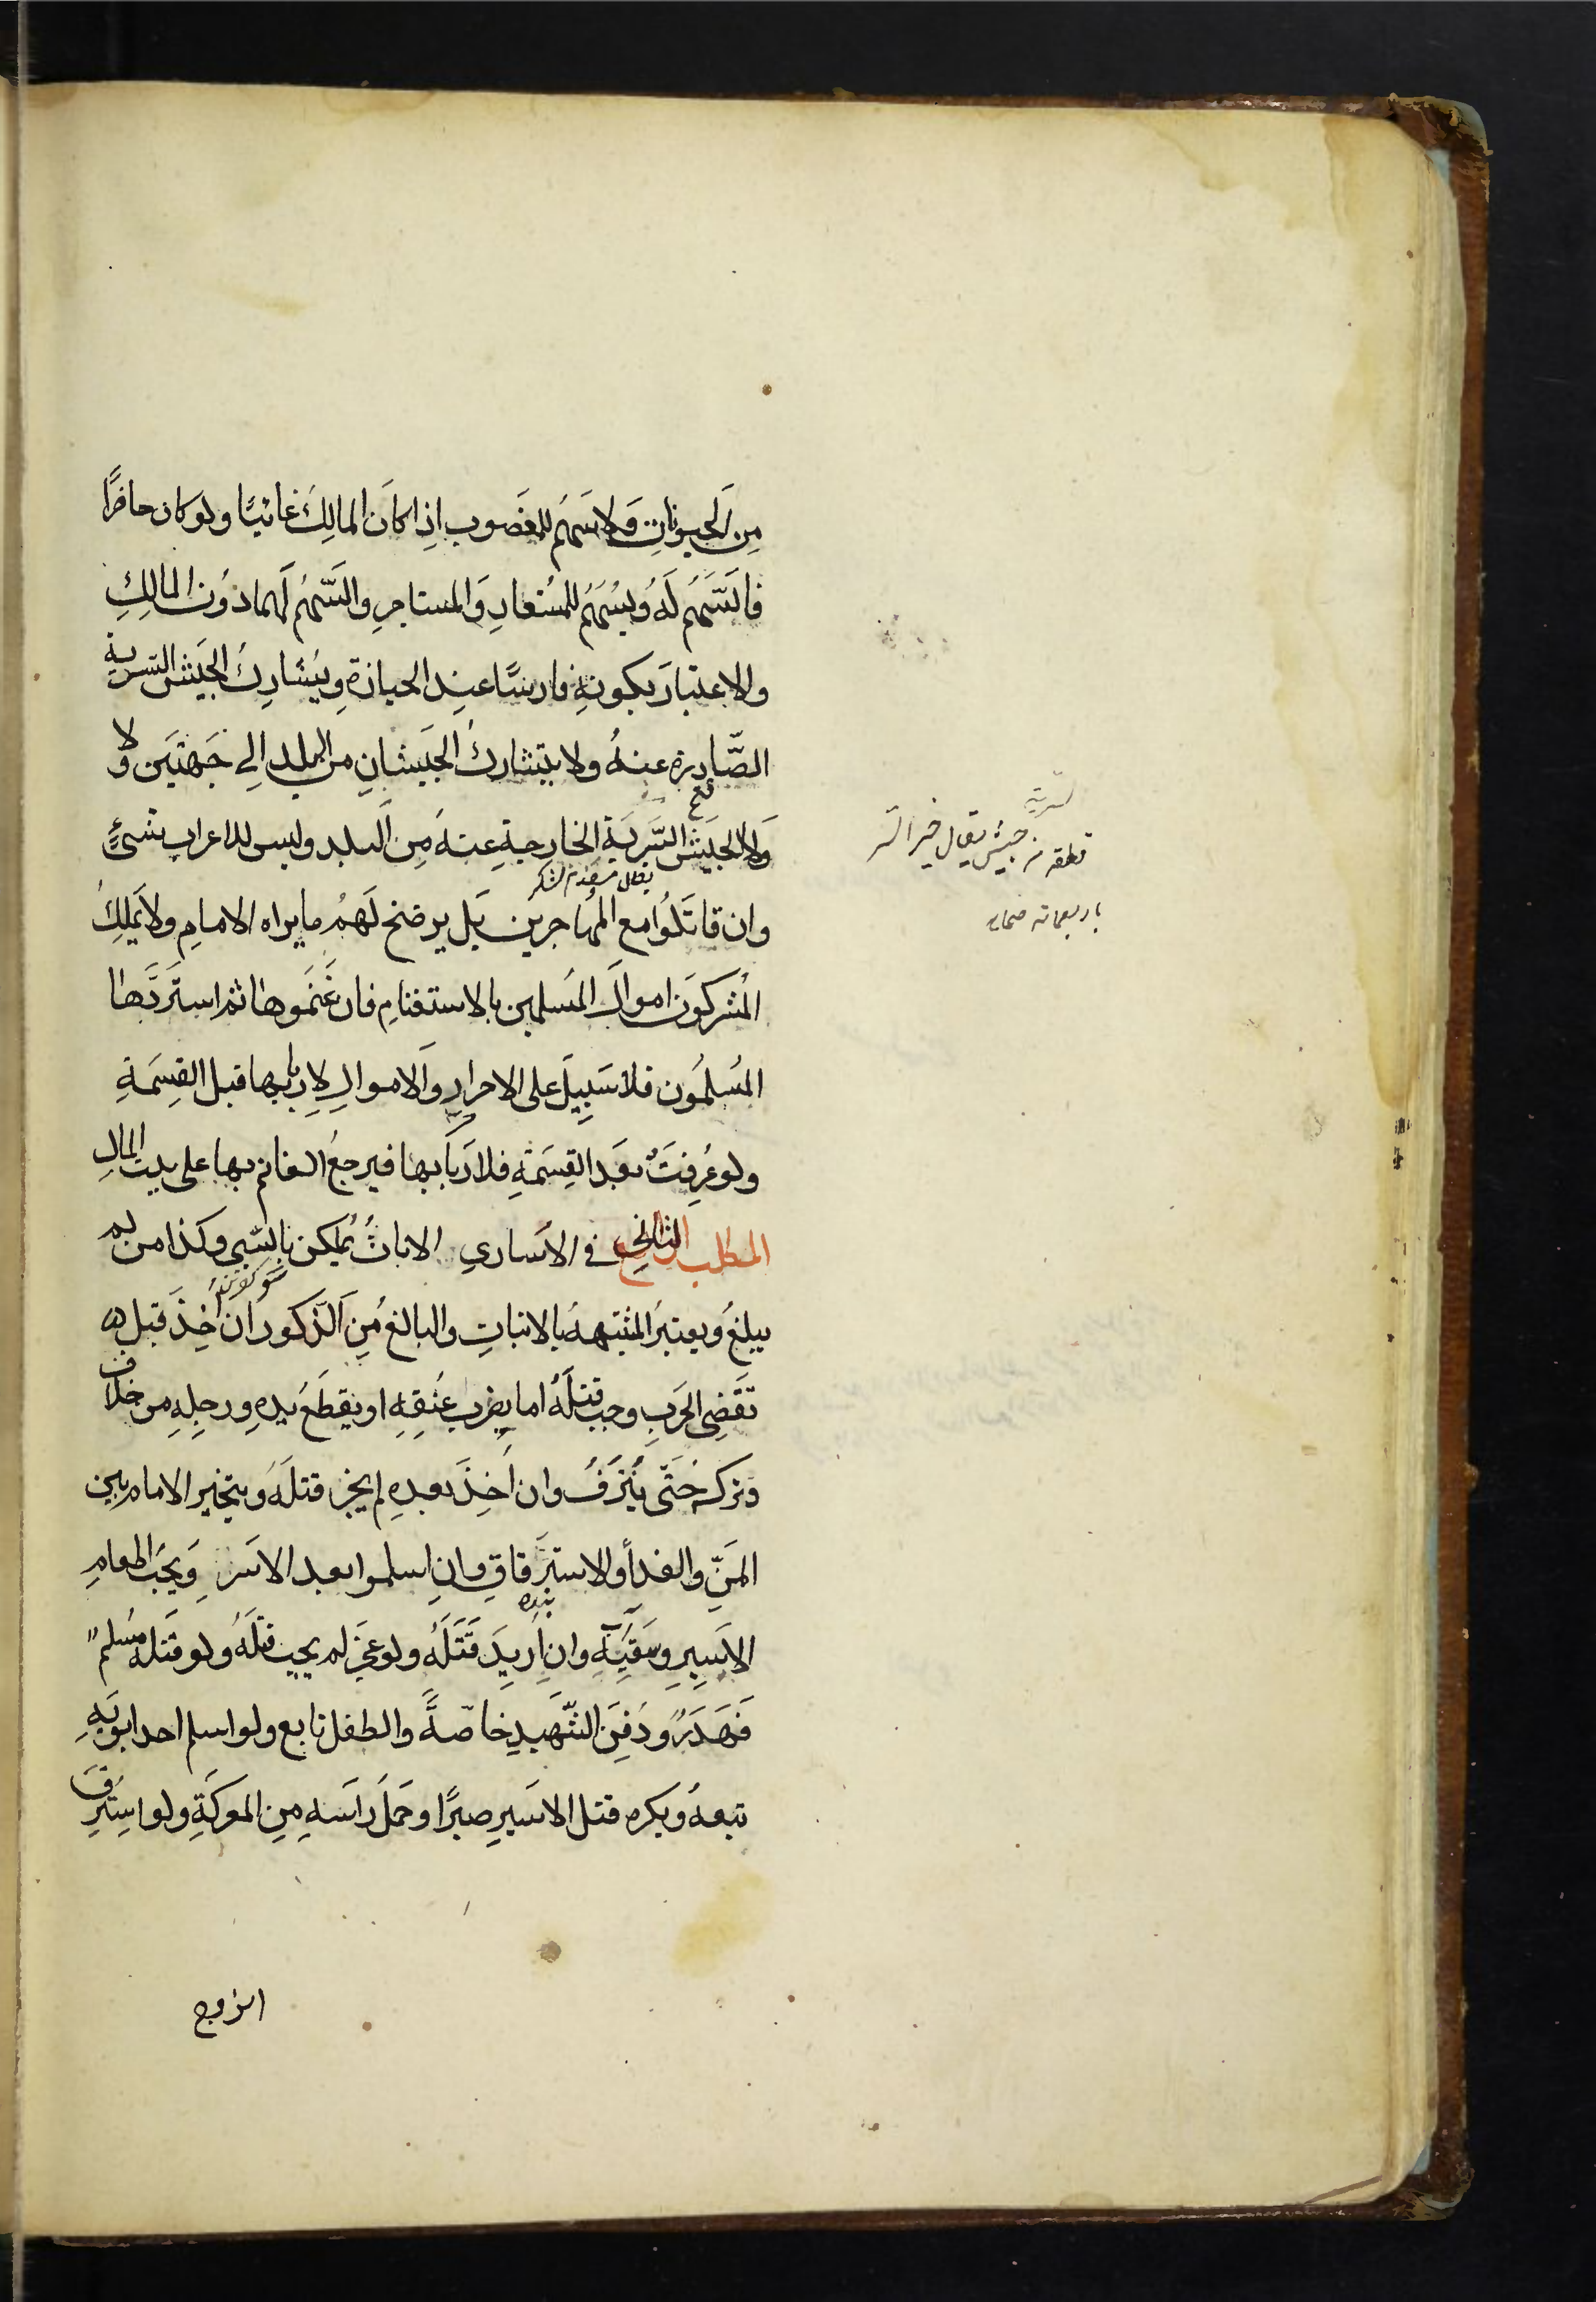 من الحيوانات ولا سهم للمغصوب اذا كان المالك غائبا ولو كان حاضرًا
فالسّهم له ويسهم للمستعار والمستاجر والسّهم لهما دون المالك
والاعتبار بكونه فارسًا عند الحيازة ويشارك الجيش السرية
الصّادرة عنه ولا يتشارك الجيشان من البلد الى جهتين ولا
ولا الجيش السّرية الخارجة عنه من البلد وليس للاعراب شيءٍ
وان قاتلوا مع المهاجرين بل يرضخ لهم ما يراه الامام ولا يملك
المشركون اموال المسلمين بالاستغنام فان غنموها ثم استردّها
المسلمون فلا سبيل على الاحرار والاموال لاربابها قبل القسمة
ولو عرفت بعد القسمة فلاربابها فيرجع الغانم بها على بيت المال
المطلب الثاني في الاسارى الاناث يملكن بالسّبي وكذا من لم
يبلغ ويعتبر المشتبه بالانبات والبالغ من الذّكور ان اخذ قبل
تقضى الحرب وجب قتله اما يضرب عنقه او يقطع يده ورجله من خلاف
وتركه حتّى ينزف وان اخذ بعده لم يجز قتله ويتخير الامام بين
المنّ والفداء والاسترقاق وان اسلموا بعد الاسر ويجب اطعام
الاسير وسقيه وان اريد قتله ولو عجز لم يجب قتله ولو قتله مسلم
فهدر ودفن الشّهيد خاصّةً والطفل تابع ولو اسلم احد ابويه
تبعه ويكره قتل الاسير صبرًا وحمل راسه من المعركة ولو استرق
الزوج
السرية
قطعة من جيش يقال خير السر
باربعمائة